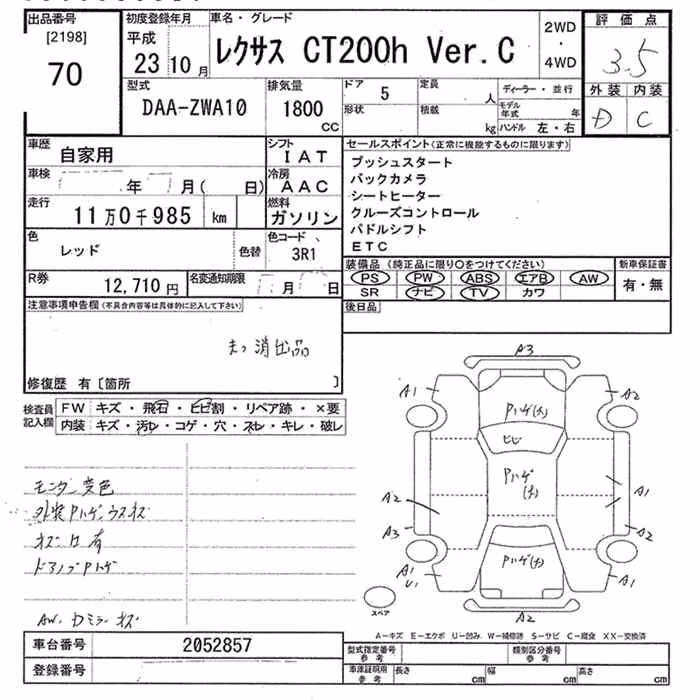 出品番号
[2198]
70
初度登録年月
平成
23 10 月
車名・グレード
レクサス CT200h Ver.C
2WD
・
4WD
評価点
3.5
外装 内装
D C
型式
DAA-ZWA10
排気量
1800
CC
ドア
5
形状
定員
人
積載
kg
ディーラー・並行
モデル年式 年
ハンドル 左・右
車歴
自家用
シフト
IAT
車検
年 月( 日)
冷房
AAC
走行
11万0千985 km
燃料
ガソリン
色
レッド
色替
色コード
3R1
R券
12,710円
名変通知期限
月 日
セールスポイント(正常に機能するものに限ります)
プッシュスタート
バックカメラ
シートヒーター
クルーズコントロール
パドルシフト
ETC
装備品(純正品に限り○をつけてください)
新車保証書
PS PW ABS エアB AW
SR ナビ TV カワ
有・無
後日品
注意事項申告欄(不具合内容等は具体的に記入して下さい)
まっ消出品
修復歴 有〔箇所 〕
検査員
記入欄
FW キズ・飛石・ヒビ割・リペア跡・×要
内装 キズ・汚レ・コゲ・穴・スレ・キレ・破レ
モニター変色
外装Pハゲ、ウスキズ
キズ凹有
ドアノブPハゲ
AW、Dミラーキズ
A3
A1
A2
Pハゲ(大)
ヒビ
Pハゲ
(大)
A2
A1
A3
A2
Pハゲ(大)
A1
U1
A1
A2
スペア
A-キズ E-エクボ U-凹み W-補修跡 S-サビ C-腐食 XX-交換済
車台番号
2052857
登録番号
型式指定番号
参考
類別区分番号
参考
車庫証明用
参考
長さ cm
幅 cm
高さ cm